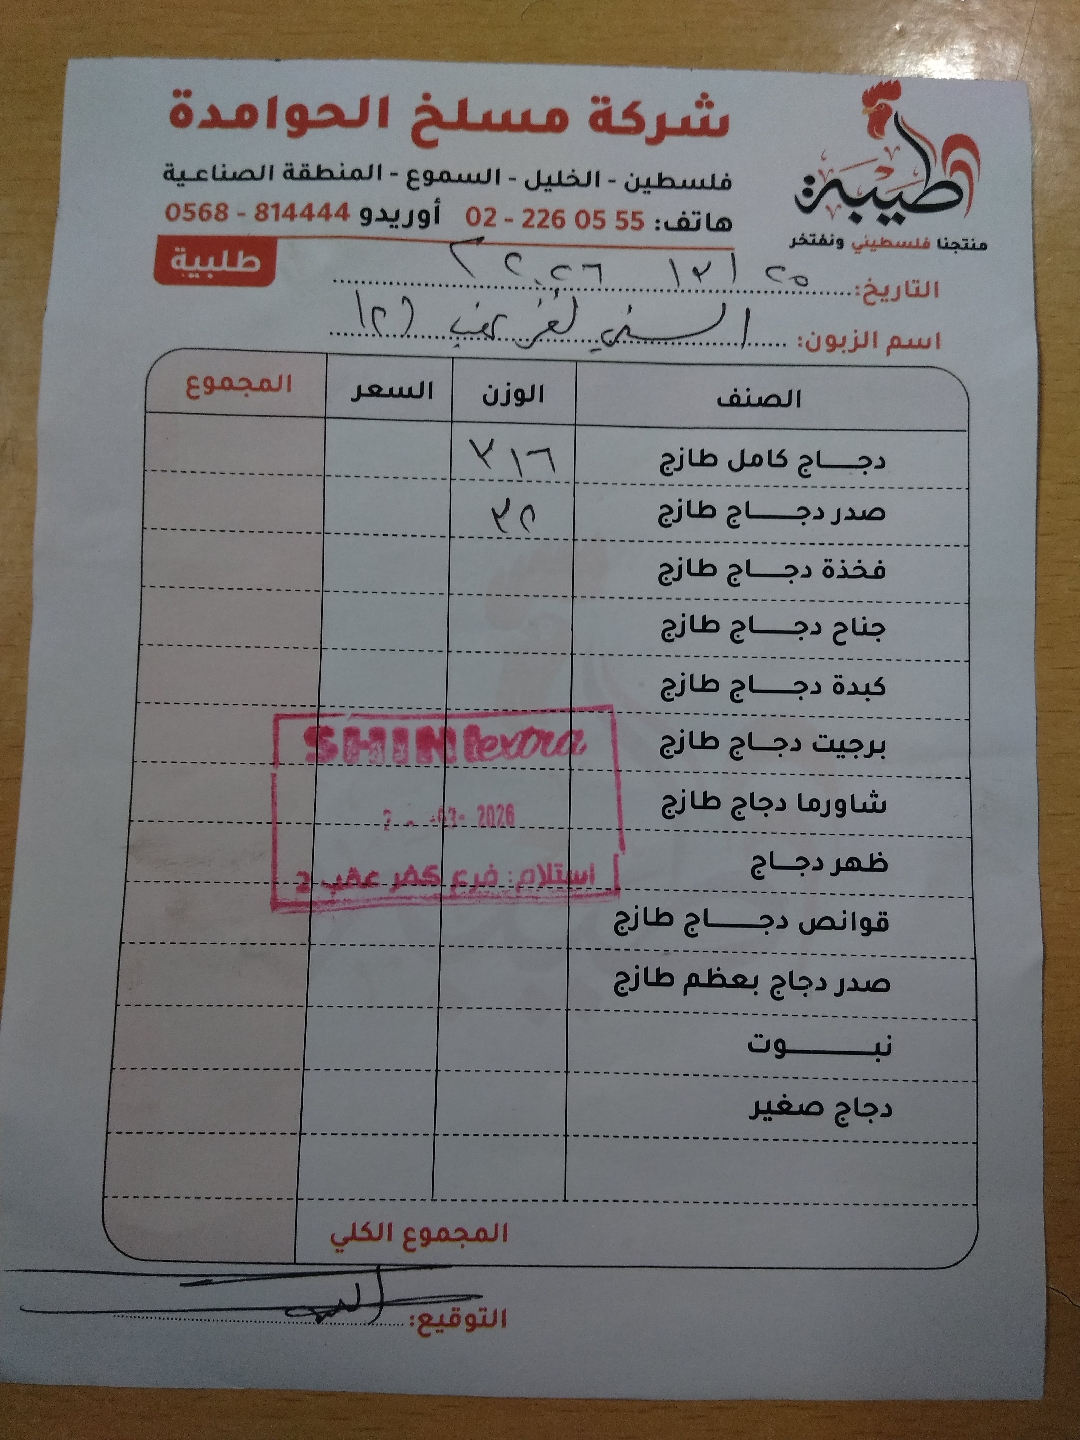 شركة مسلخ الحوامدة
فلسطين - الخليل - السموع - المنطقة الصناعية
هاتف: 02 - 226 05 55 أوريدو 0568 - 814444
طيبة
منتجنا فلسطيني ونفتخر
طلبية
التاريخ: ٢٥ /٣/ ٢٠٢٦
اسم الزبون: السني كفر عقب (٢)
الصنف الوزن السعر المجموع
دجاج كامل طازج ٣١٦
صدر دجاج طازج ٣٢
فخذة دجاج طازج
جناح دجاج طازج
كبدة دجاج طازج
برجيت دجاج طازج
شاورما دجاج طازج
ظهر دجاج
قوانص دجاج طازج
صدر دجاج بعظم طازج
نبوت
دجاج صغير
SHINI extra
-03- 2026
استلام: فرع كفر عقب 2
المجموع الكلي
التوقيع: